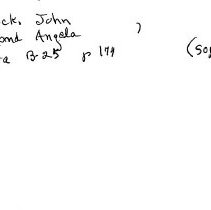 ck, John )
ond Angela
a B-25 p 179 (Sop